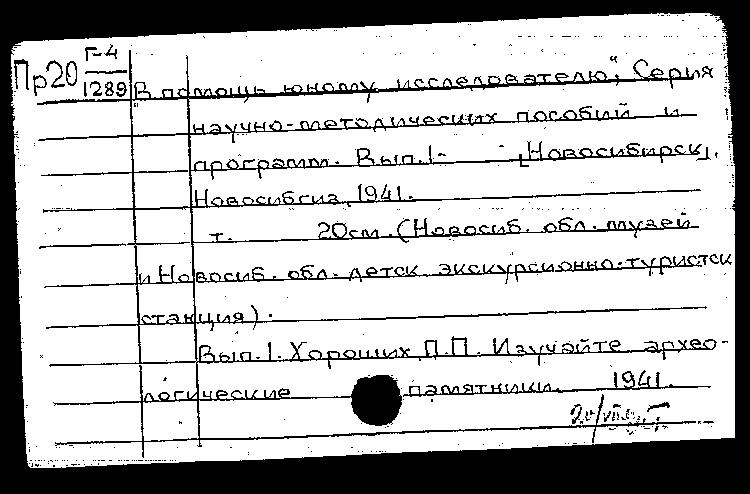 Пр20 Г-4
1289
В помощь юному исследователю", Серия
научно-методических пособий и
программ. Вып.1- [Новосибирск],
Новосибгиз, 1941.
т. 20см. (Новосиб. обл. музей
и Новосиб. обл. детск. экскурсионно-туристск
станция).
Вып.1. Хороших П.П. Изучайте архео-
логические памятники. 1941.